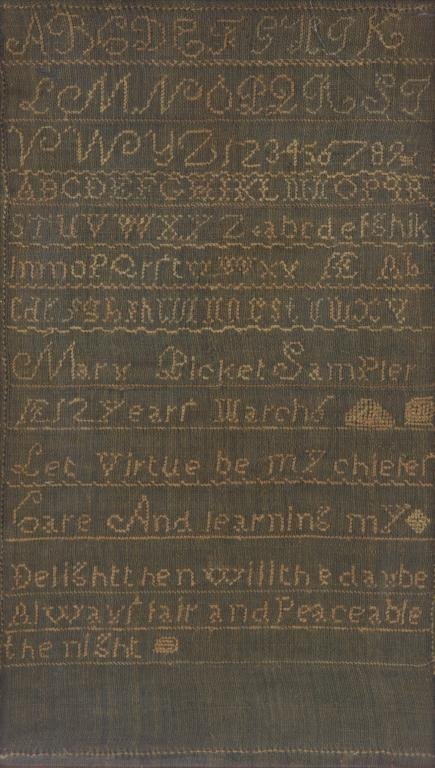 ABCDEFGHIK
LMNOPQRST
VWYZ123456789
ABCDEFGHIKLMOPQR
STUVWXYZ abcdefghik
Æ Ab
Mary Picket Sampler
Æ 12 Yearſ March 6
Let Virtue be my chiefeſt
Care And learning my
Delight then will the day be
Alwayſ fair and Peaceable
the night